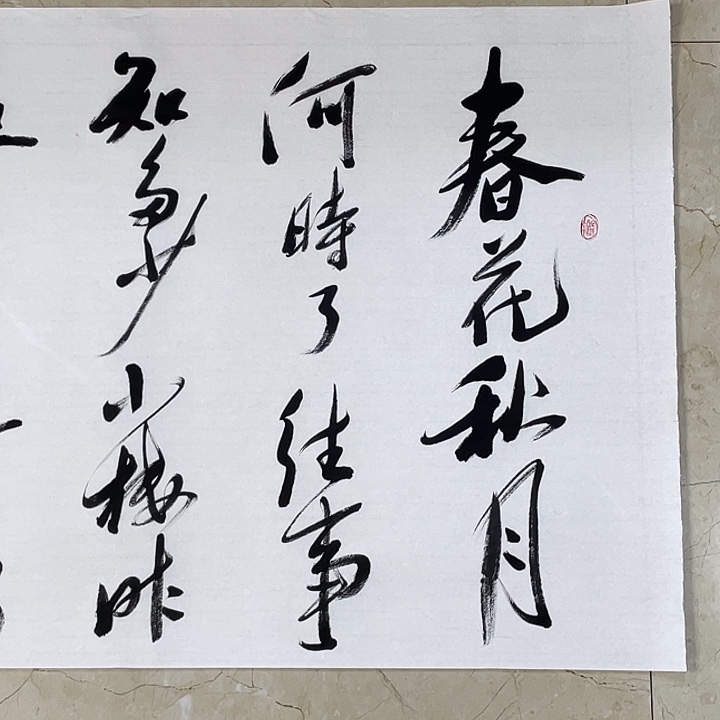 春花秋月
何時了往事
知多少小樓昨